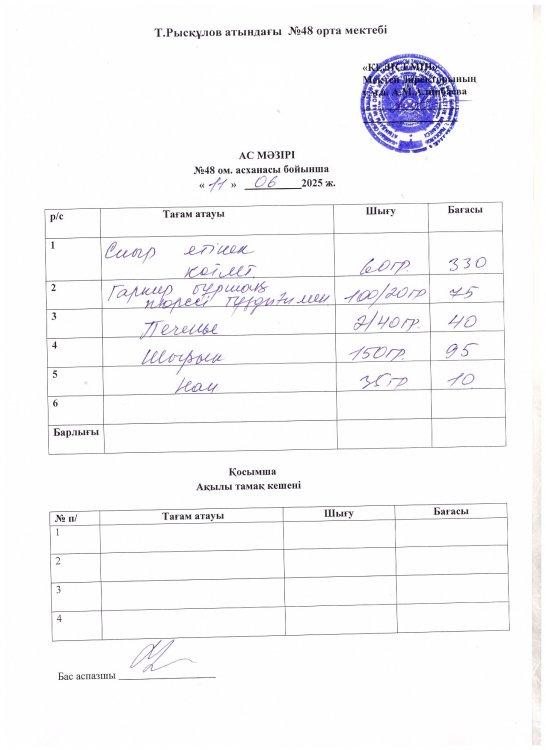 Т.Рысқұлов атындағы №48 орта мектебі
«КЕЛІСЕМІН»
Мектеп директорының
АС МӘЗІРІ
№48 ом. асханасы бойынша
« 11 » 06 2025 ж.
р/с Тағам атауы Шығу Бағасы
1 Сиыр етінен котлет 60гр. 330
2 Гарнир бұршақ пюресі тұздығымен 100/20гр 75
3 Печенье 2/40гр. 40
4 Шырын 150гр. 95
5 Нан 35гр 10
6
Барлығы
Қосымша
Ақылы тамақ кешені
№ п/ Тағам атауы Шығу Бағасы
1
2
3
4
Бас аспазшы